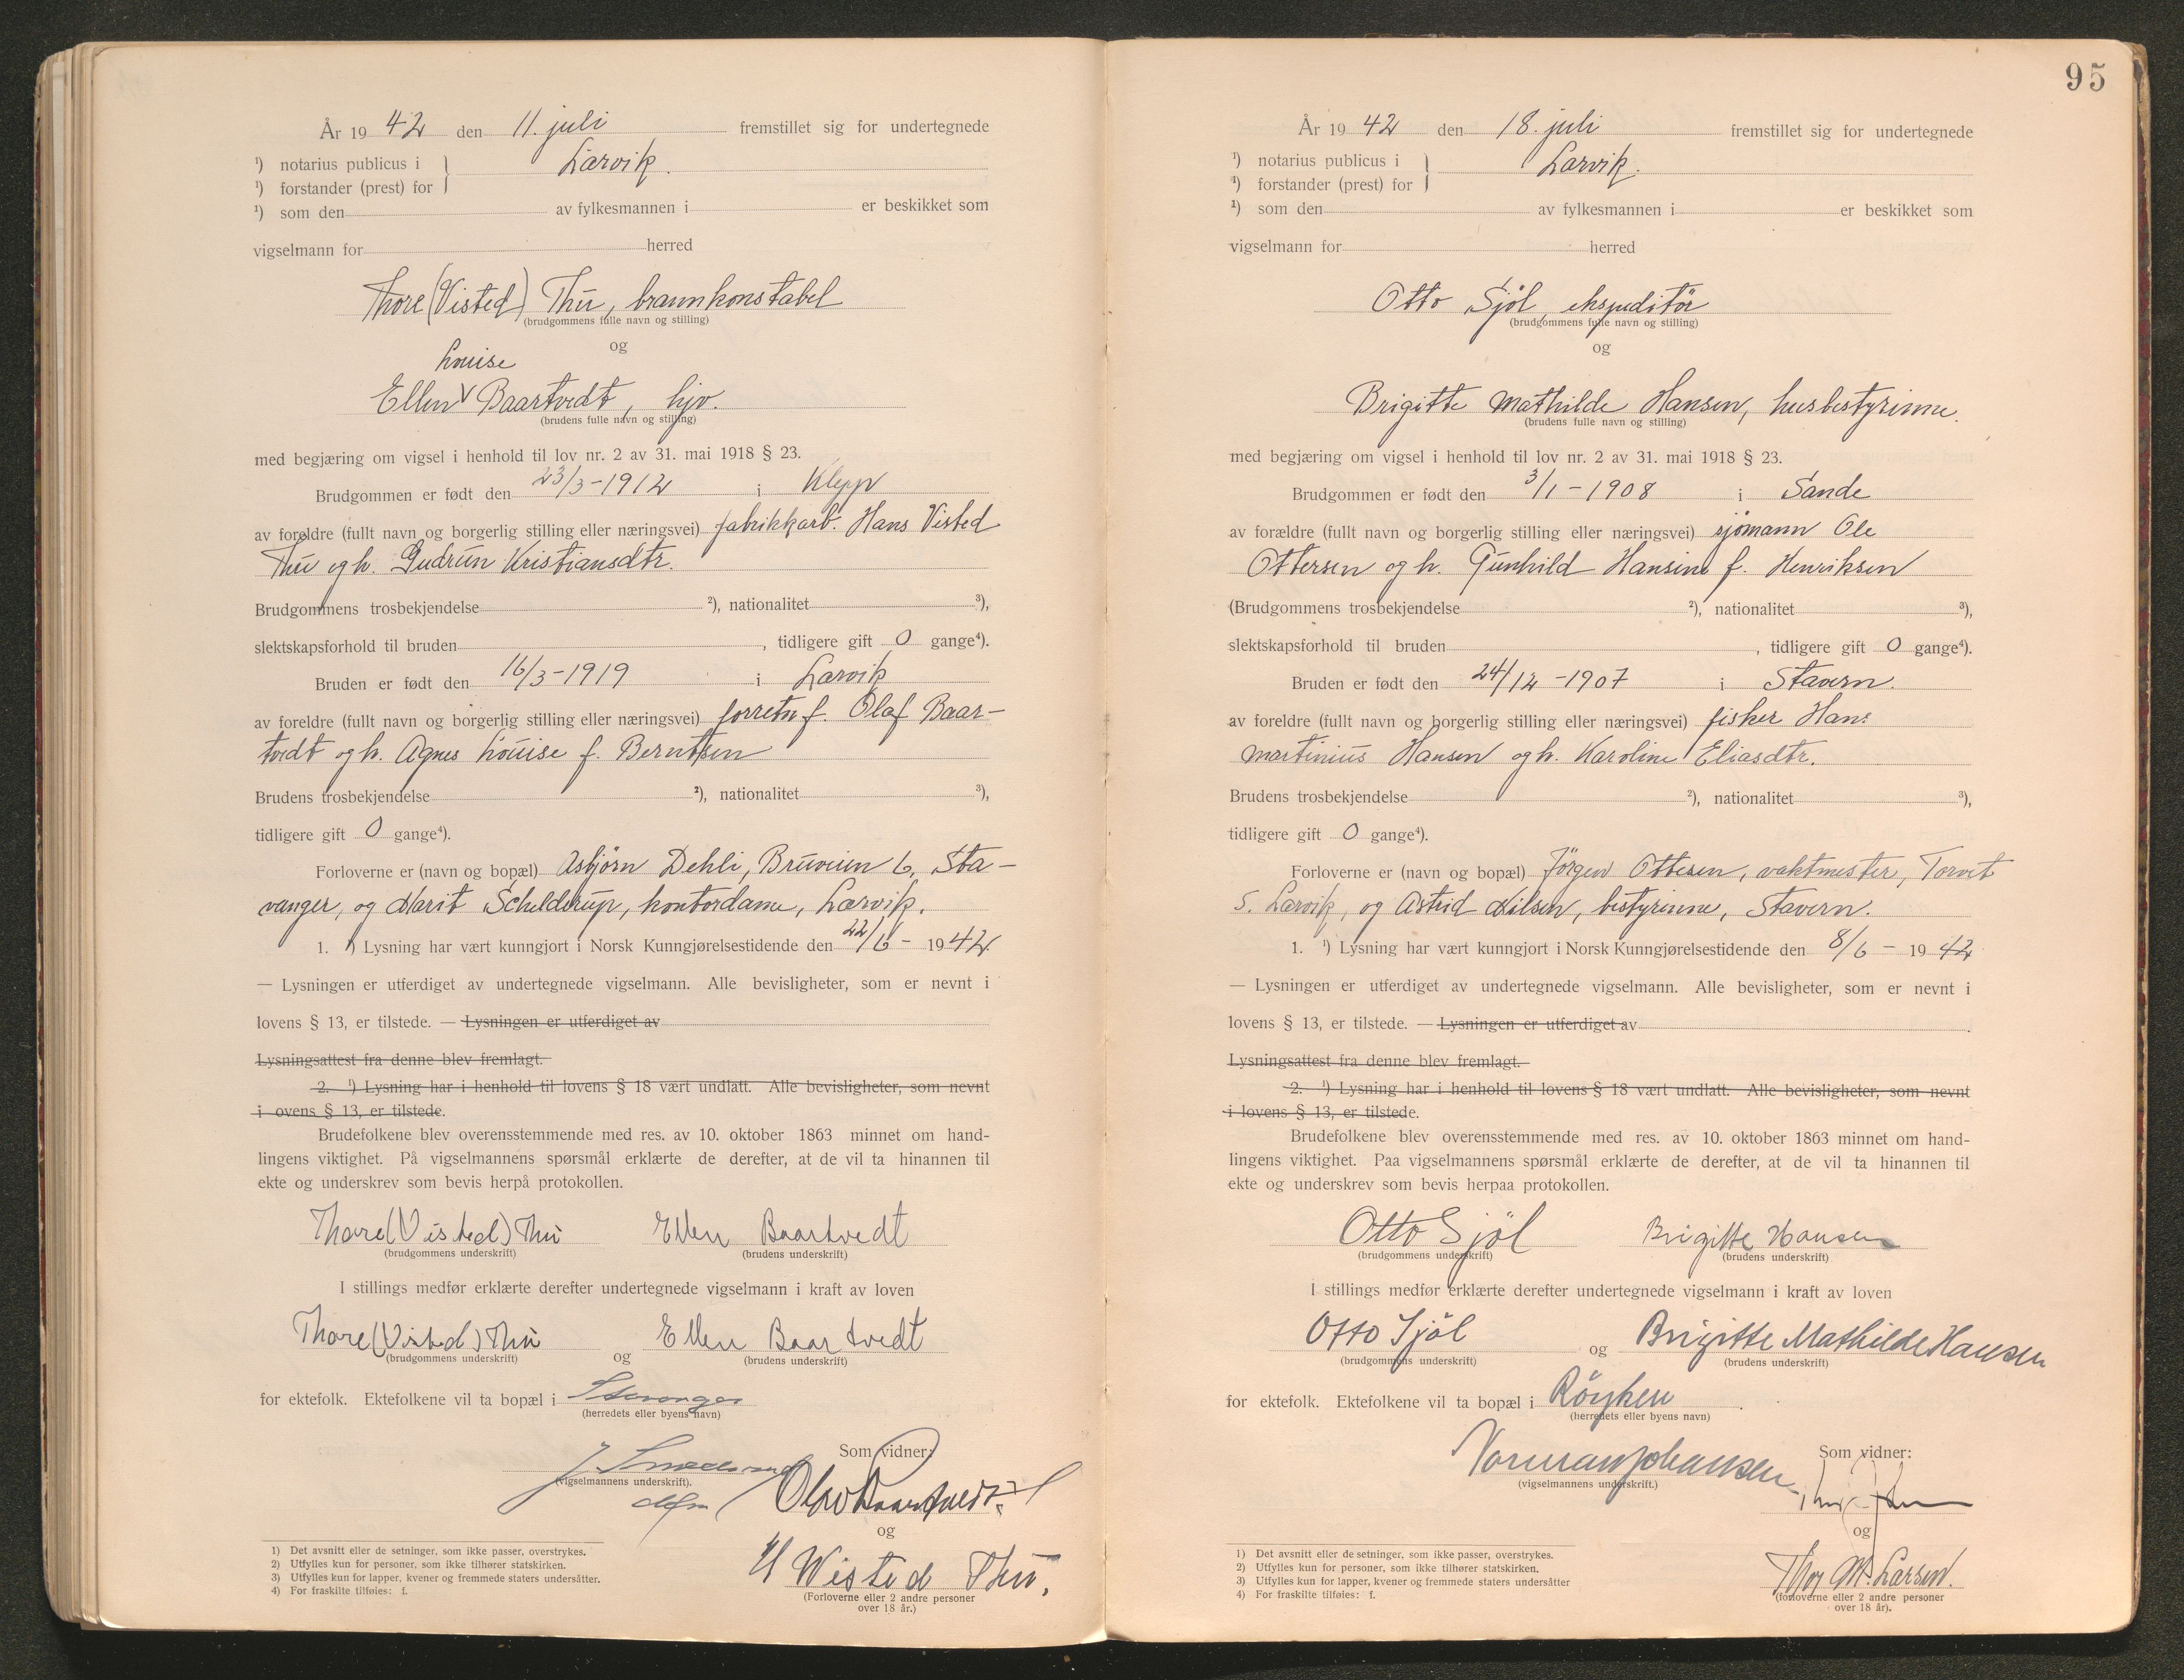 År 19 42 den 11. juli fremstillet sig for undertegnede
¹) notarius publicus i } Larvik.
¹) forstander (prest) for
¹) som den av fylkesmannen i er beskikket som
vigselmann for herred
Thore (Visted) Thu, brannkonstabel
(brudgommens fulle navn og stilling)
og
Louise
Ellen V Baartvedt, hjv.
(brudens fulle navn og stilling)
med begjæring om vigsel i henhold til lov nr. 2 av 31. mai 1918 § 23.
Brudgommen er født den 23/3-1912 i Klepp
av foreldre (fullt navn og borgerlig stilling eller næringsvei) fabrikkarb. Hans Visted
Thu og h. Gudrun Kristiansdtr.
Brudgommens trosbekjendelse ²), nationalitet ³),
slektskapsforhold til bruden , tidligere gift 0 gange⁴).
Bruden er født den 16/3-1919 i Larvik
av foreldre (fullt navn og borgerlig stilling eller næringsvei) forretn f. Olaf Baar-
tvedt og h. Agnes Louise f. Berntsen
Brudens trosbekjendelse ²), nationalitet ³),
tidligere gift 0 gange⁴).
Forloverne er (navn og bopæl) Asbjörn Dehli, Bruveien 6, Sta-
vanger, og Marit Schelderup, kontordame, Larvik.
1. ¹) Lysning har vært kunngjort i Norsk Kunngjørelsestidende den 22/6 - 1942
— Lysningen er utferdiget av undertegnede vigselmann. Alle bevisligheter, som er nevnt i
lovens § 13, er tilstede. — Lysningen er utferdiget av
Lysningsattest fra denne blev fremlagt.
2. ¹) Lysning har i henhold til lovens § 18 vært undlatt. Alle bevisligheter, som nevnt
i ovens § 13, er tilstede.
Brudefolkene blev overensstemmende med res. av 10. oktober 1863 minnet om hand-
lingens viktighet. På vigselmannens spørsmål erklærte de derefter, at de vil ta hinannen til
ekte og underskrev som bevis herpå protokollen.
Thore (Visted) Thu Ellen Baartvedt
(brudgommens underskrift) (brudens underskrift)
I stillings medfør erklærte derefter undertegnede vigselmann i kraft av loven
Thore (Visted) Thu og Ellen Baartvedt
(brudgommens underskrift) (brudens underskrift)
for ektefolk. Ektefolkene vil ta bopæl i Stavanger
(herredets eller byens navn)
Som vidner:
(vigselmannens underskrift).
Olav Baartvedt
og
H Wisted Thu.
(Forloverne eller 2 andre personer
over 18 år.)
1) Det avsnitt eller de setninger, som ikke passer, overstrykes.
2) Utfylles kun for personer, som ikke tilhører statskirken.
3) Utfylles kun for lapper, kvener og fremmede staters undersåtter.
4) For fraskilte tilføies: f.
95
År 19 42 den 18. juli fremstillet sig for undertegnede
¹) notarius publicus i } Larvik.
¹) forstander (prest) for
¹) som den av fylkesmannen i er beskikket som
vigselmann for herred
Otto Sjöl, ekspeditör
(brudgommens fulle navn og stilling)
og
Brigitte Mathilde Hansen, husbestyrinne.
(brudens fulle navn og stilling)
med begjæring om vigsel i henhold til lov nr. 2 av 31. mai 1918 § 23.
Brudgommen er født den 3/1-1908 i Sande
av forældre (fullt navn og borgerlig stilling eller næringsvei) sjömann Ole
Ottersen og h. Gunhild Hansine f. Henriksen
(Brudgommens trosbekjendelse ²), nationalitet ³),
slektskapsforhold til bruden , tidligere gift 0 gange⁴).
Bruden er født den 24/12-1907 i Stavern.
av foreldre (fullt navn og borgerlig stilling eller næringsvei) fisker Hans
Martinius Hansen og h. Karoline Eliasdtr.
Brudens trosbekjendelse ²), nationalitet ³),
tidligere gift 0 gange⁴).
Forloverne er (navn og bopæl) Jörgen Ottesen, vaktmester, Torvet
5. Larvik, og Astrid Nilsen, bestyrinne, Stavern.
1. ¹) Lysning har vært kunngjort i Norsk Kunngjørelsestidende den 8/6 - 1942
— Lysningen er utferdiget av undertegnede vigselmann. Alle bevisligheter, som er nevnt i
lovens § 13, er tilstede. — Lysningen er utferdiget av
Lysningsattest fra denne blev fremlagt.
2. ¹) Lysning har i henhold til lovens § 18 vært undlatt. Alle bevisligheter, som nevnt
i lovens § 13, er tilstede.
Brudefolkene blev overensstemmende med res. av 10. oktober 1863 minnet om hand-
lingens viktighet. Paa vigselmannens spørsmål erklærte de derefter, at de vil ta hinannen til
ekte og underskrev som bevis herpaa protokollen.
Otto Sjöl Brigitte Hansen
(brudgommens underskrift) (brudens underskrift)
I stillings medfør erklærte derefter undertegnede vigselmann i kraft av loven
Otto Sjöl og Brigitte Mathilde Hansen
(brudgommens underskrift) (brudens underskrift)
for ektefolk. Ektefolkene vil ta bopæl i Röyken
(herredets eller byens navn)
Norman Johansen Som vidner:
(vigselmannens underskrift.)
og
Thor M. Larsen.
(forloverne eller 2 andre personer
over 18 år).
1) Det avsnitt eller de setninger, som ikke passer, overstrykes.
2) Utfylles kun for personer, som ikke tilhører statskirken.
3) Utfylles kun for lapper, kvener og fremmede staters undersåtter
4) For fraskilte tilføies: f.